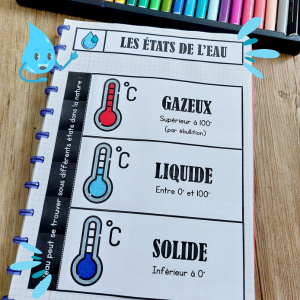 LES ÉTATS DE L'EAU
eau peut se trouver sous différents états dans la nature :
°C
GAZEUX
Supérieur à 100°
(par ébullition)
°C
LIQUIDE
Entre 0° et 100°
°C
SOLIDE
Inférieur à 0°